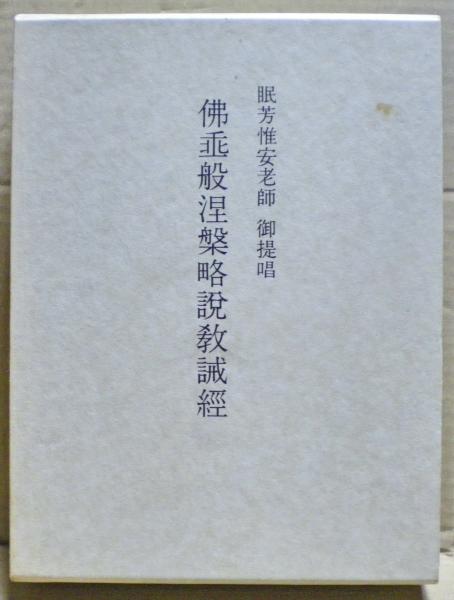 眠芳惟安老師 御提唱
佛垂般涅槃略說敎誡經